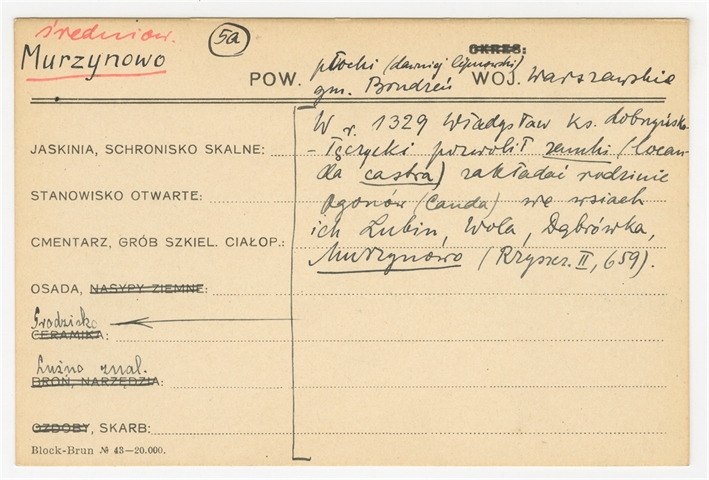 średniow.
5a
Murzynowo
OKRES:
POW. płocki (dawniej lipnowski) WOJ. Warszawskie
gm. Bondzeń
W r. 1329 Władysław ks. dobrzyńsko
JASKINIA, SCHRONISKO SKALNE: - łęczycki pozwolił zamki (locan-
da castra) zakładać rodzinie
STANOWISKO OTWARTE: Ogonów (Cauda) we wsiach
CMENTARZ, GRÓB SZKIEL. CIAŁOP.: ich Łubin, Wola, Dąbrówka,
Murzynowo (Rzyszcz. II, 659).
OSADA, NASYPY ZIEMNE:
Grodzisko
CERAMIKA:
Luźno znal.
BROŃ, NARZĘDZIA:
OZDOBY, SKARB:
Block-Brun № 43—20.000.